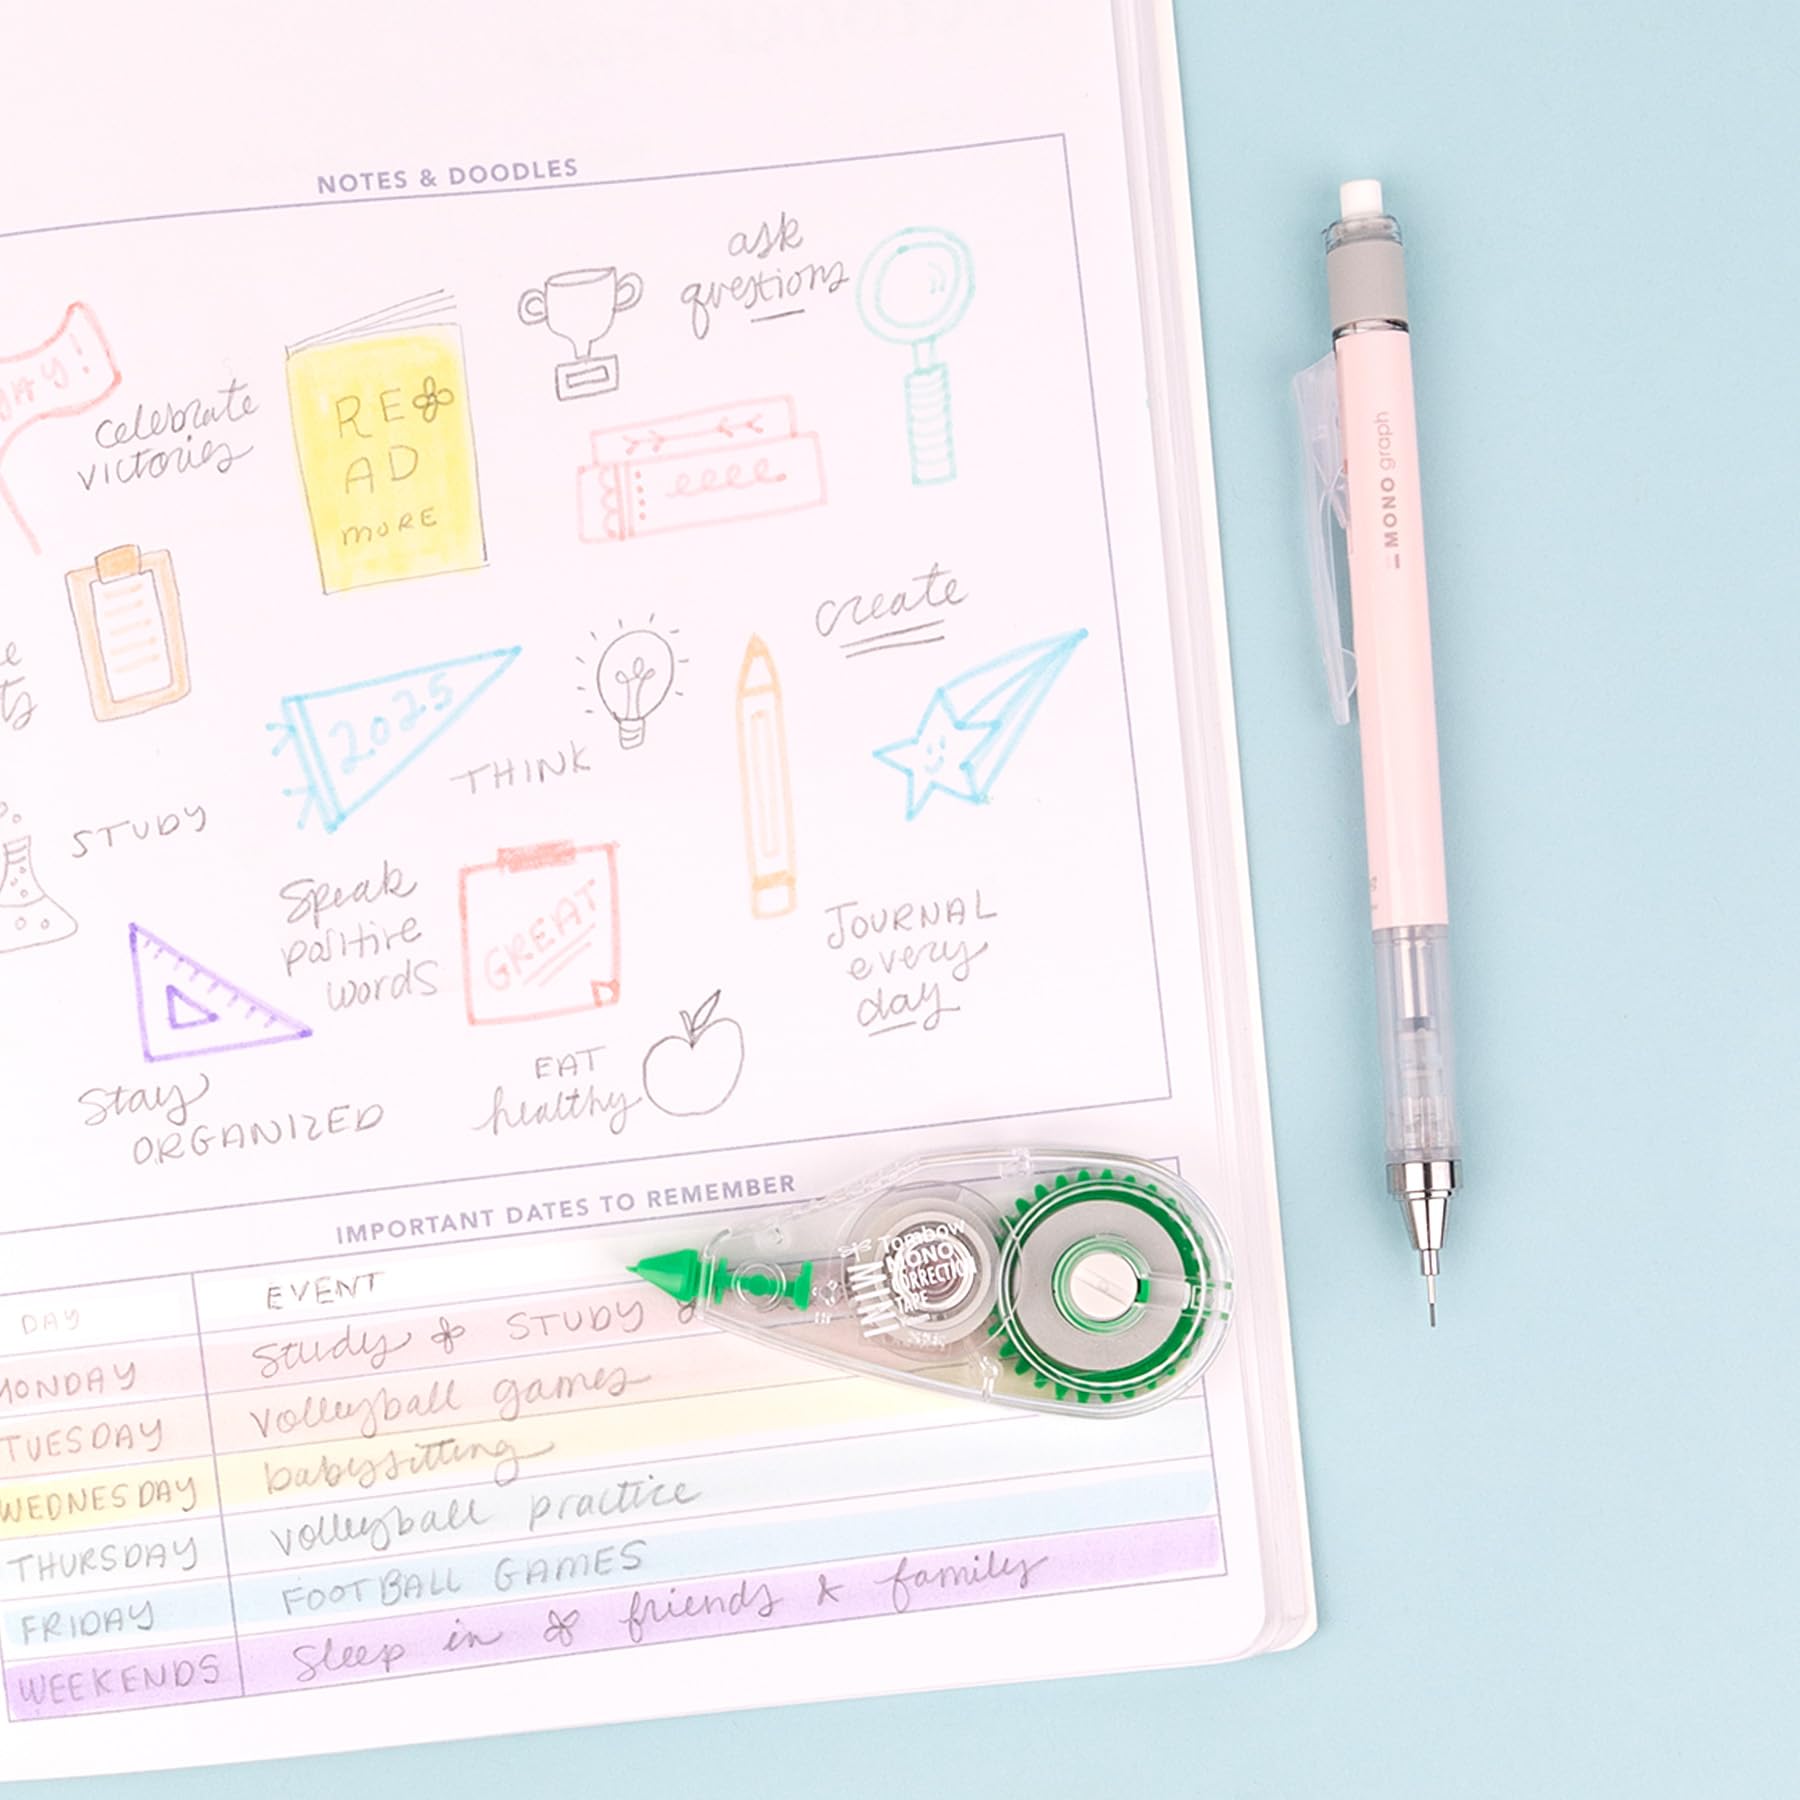 NOTES & DOODLES
ask
questions
celebrate
victories
RE
AD
MORE
create
2025
THINK
STUDY
Speak
positive
words
GREAT
JOURNAL
every
day
Stay
ORGANIZED
EAT
healthy
IMPORTANT DATES TO REMEMBER
DAY EVENT
MONDAY Study & STUDY
TUESDAY volleyball games
WEDNESDAY babysitting
THURSDAY volleyball practice
FRIDAY FOOTBALL GAMES
WEEKENDS Sleep in & friends & family
Tombow
MONO
CORRECTION
TAPE
MINI
MONO graph